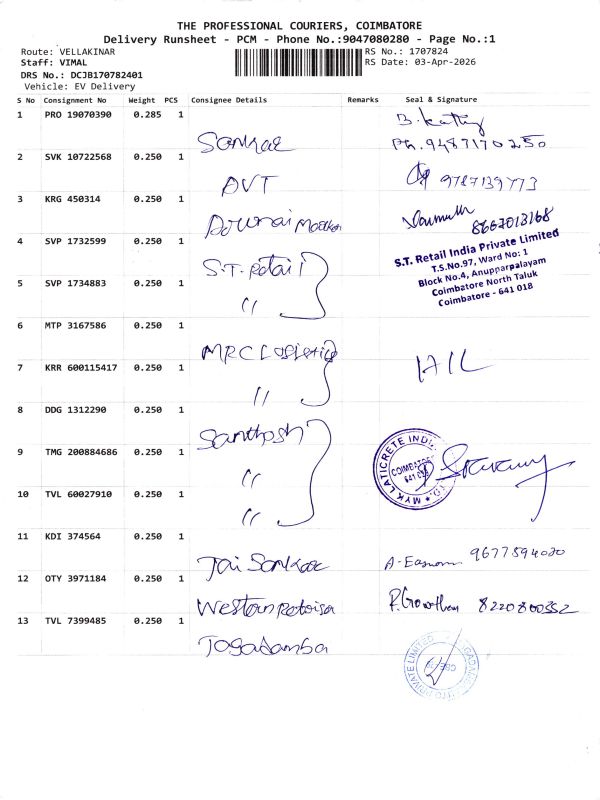 THE PROFESSIONAL COURIERS, COIMBATORE
Delivery Runsheet - PCM - Phone No.:9047080280 - Page No.:1
Route: VELLAKINAR RS No.: 1707824
Staff: VIMAL RS Date: 03-Apr-2026
DRS No.: DCJB170782401
Vehicle: EV Delivery
S No Consignment No Weight PCS Consignee Details Remarks Seal & Signature
1 PRO 19070390 0.285 1 Sankar B. Kathy
Ph. 9487170250
2 SVK 10722568 0.250 1 AVT 9787139773
3 KRG 450314 0.250 1 8667013168
4 SVP 1732599 0.250 1 S.T. Retail
S.T. Retail India Private Limited
T.S.No.97, Ward No: 1
Block No.4, Anupparpalayam
Coimbatore North Taluk
Coimbatore - 641 018
5 SVP 1734883 0.250 1 "
6 MTP 3167586 0.250 1 MRC Logistics
7 KRR 600115417 0.250 1 "
8 DDG 1312290 0.250 1 Santhosh
9 TMG 200884686 0.250 1 " MYK LATICRETE INDIA COIMBATORE 641 0
10 TVL 60027910 0.250 1 "
11 KDI 374564 0.250 1 Jai Sankar 9677594020
12 OTY 3971184 0.250 1 Western 8220800352
13 TVL 7399485 0.250 1 Jagadamba
PRIVATE LIMITED